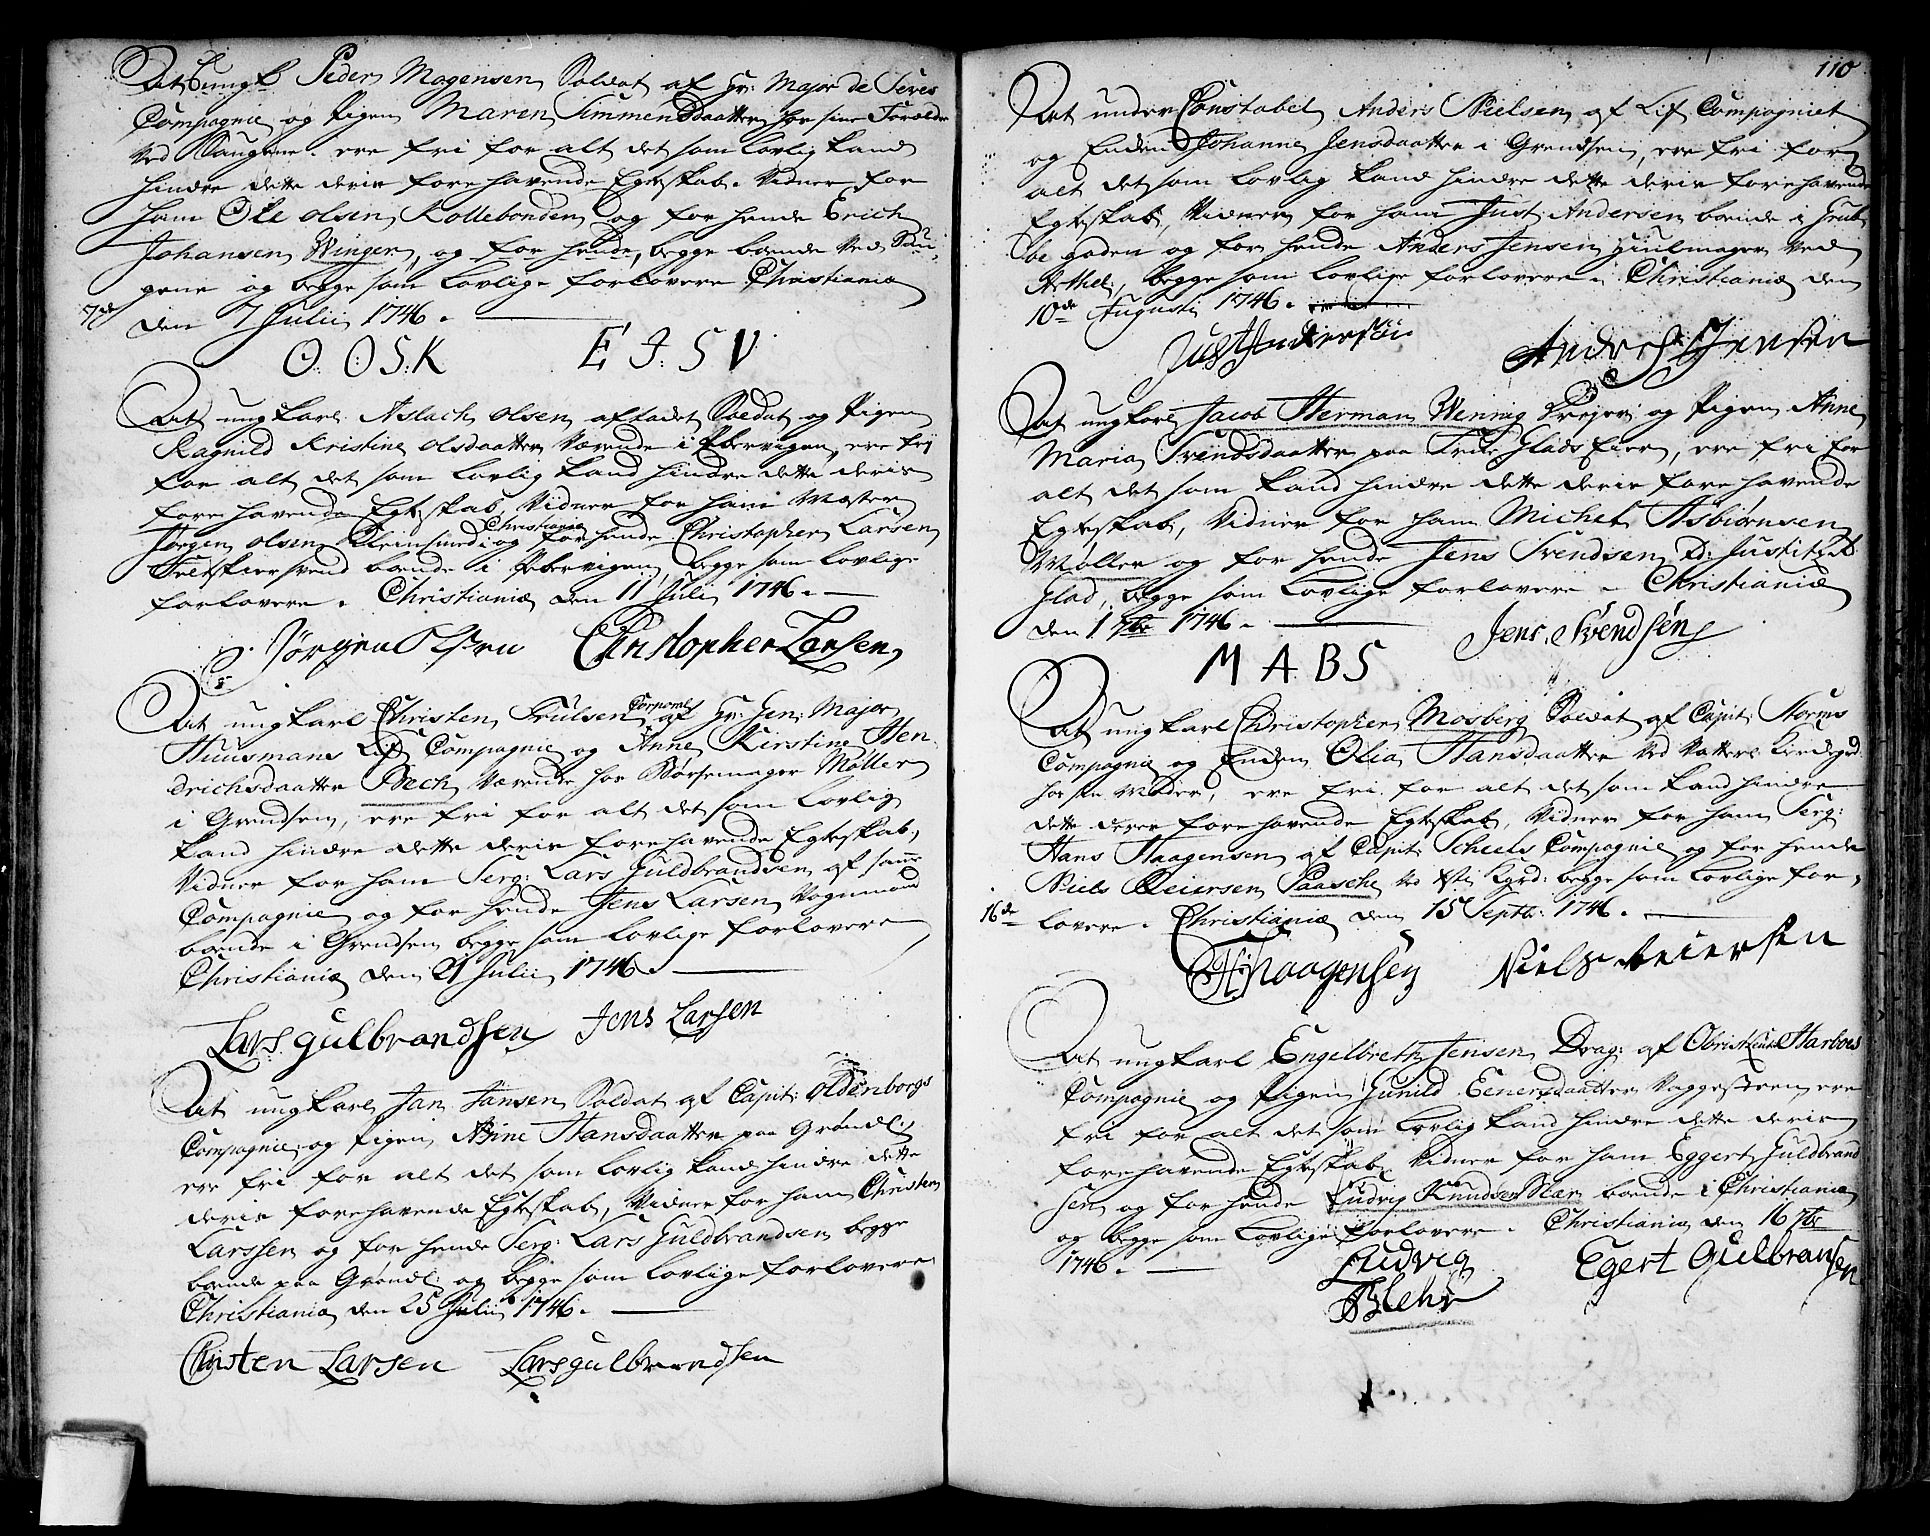 At Ungk: Peder Mogensen Soldat af Hr: Major de Seves
Compagnie og Pigen Maren Simmensdaatter hos sine Forældre
ved Saugene. ere fri for alt det som lovlig kand
hindre dette deris forehavende Egteskab. Vidner for
ham Ole Olsen Kollebonden og for hende Erich
Johansen Winger, og for hende, begge boende ved Sau-
gene og begge som lovlige forlovere Christiania
den 7 Julii 1746.
O: O S: K E J: S V
At ungkarl Aslach Olsen aftadet Soldat og Pigen
Ragnild Kristine Olsdaatter værende i Pebervigen, ere fri
for alt det som lovlig kand hindre dette deris
forehavende Egteskab, Vidner for ham Mæster
Jørgen Olsen i Christiania og for hende Christopher Larsen
Feldskiersvend boende i Pebervigen begge som lovlige
forlovere. Christiania den 11 Julii 1746.
Jørgen Olsen Christopher Larsen
At ungkarl Christen Trulsen Corporal af Hr: Gen: Major
Huusmans Lif Compagnie og Anne Kirstine Hen-
drichsdaatter Bech værende hos Børsemager Møller
i Grendsen, ere fri for alt det som lovlig
kand hindre dette deris forehavende Egteskab,
Vidner for ham Serg: Lars Guldbrandsen af samme
Compagnie og for hende Jens Larsen Vognmand
boende i Grendsen begge som lovlige forlovere
Christiania den 21 Julii 1746.
Lars gulbrandsen Jens Larsen
At ungkarl Jan Jansen Soldat af Capit: Oldenborgs
Compagnie og Pigen Hansdaatter paa Grøndl:
ere fri for alt det som lovlig kand hindre dette
deris forehavende Egteskab, Vidner for ham Christen
Larssen og for hende Serg: Lars Guldbrandsen begge
boende paa Grøndl: og begge som lovlige forlovere
Christiania den 25 Julii 1746.
Christen Larsen Lars gulbrandsen
110
At under Constabel Anders Nielsen af Lif Compagniet
og Enken Johanne Jensdaatter i Grendsen, ere fri for
alt det som lovlig kand hindre dette deris forehavende
Egteskab, Vidner for ham Just Andersen boende i Grub-
be gaden og for hende Anders Jensen Hiulmager ved
Arthel:, begge som lovlige forlovere. Christiania den
10de Augusti 1746.
Just Andersen Anders Jensen
At ungkarl Jacob Herman Wennig og Pigen Anne
Maria Svendsdaatter paa Glads Eier, ere fri for
alt det som kand hindre dette deris forehavende
Egteskab, Vidner for ham Michel Asbiørnsen
Møller og for hende Jens Svendsen Justitzrd:
Glad, begge som lovlige forlovere. Christiania
den 1 7br 1746.
M A B S Jens Svendsen
At ungkarl Christopher Mosberg Soldat af Capit: Storms
Compagnie og Enken Olia Hansdaatter ved Vatters Kirdegrd:
hos sin Moder, ere fri for alt det som kand hindre
dette deris forehavende Egteskab, Vidner for ham Serg:
Hans Haagensen af Capit: Scheels Compagnie og for hende
Niels Reiersen Paasche ved begge som lovlige for-
16de lovere. Christiania den 15 Septb: 1746.
H Haagensen Niels Reiersen
At ungkarl Engelbreth Jensen Drag: af Obrist Harboes
Compagnie og Pigen Gunild Eenersdaatter Vaggesteen, ere
fri for alt det som lovlig kand hindre dette deris
forehavende Egteskab Vidner for ham Eggert Guldbrand-
sen og for hende Ludvig Knudsen Blær boende i Christiania
og begge som lovlige forlovere. Christiania den 16 7br
1746. Ludvig Egert Gulbransen
Blehr